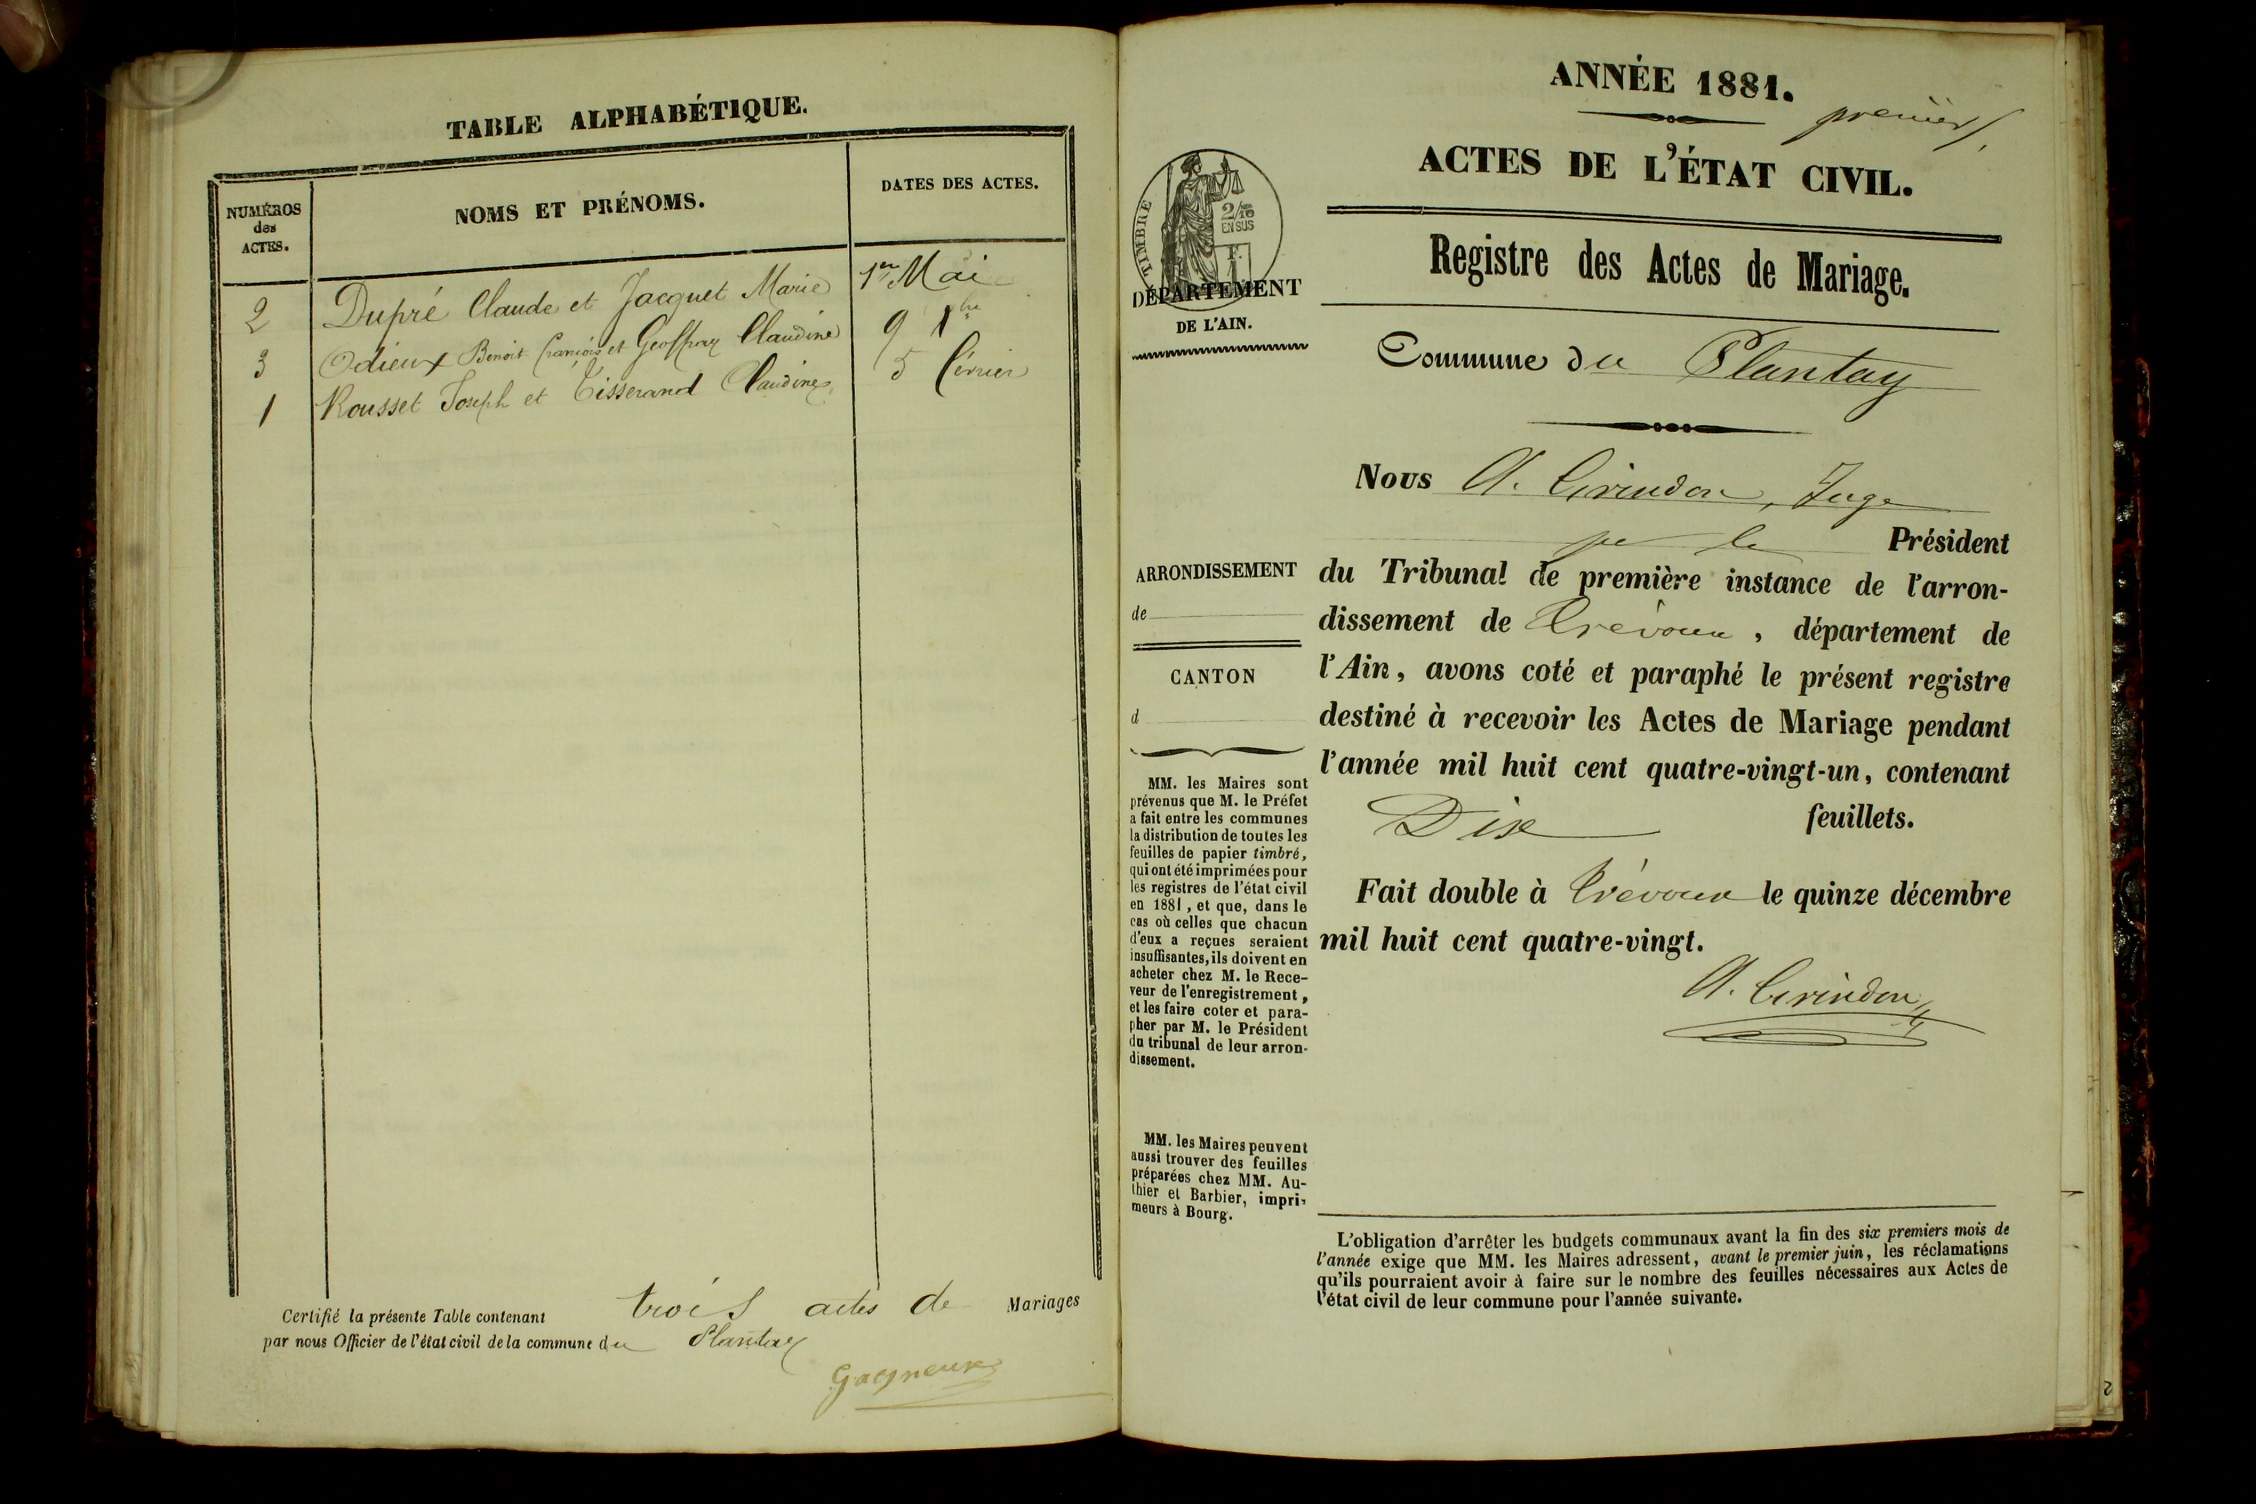 TABLE ALPHABÉTIQUE.
NUMÉROS
des
ACTES.
NOMS ET PRÉNOMS.
DATES DES ACTES.
2 Dupré Claude et Jacquet Marie 1er Mai
3 Odieux Benoit François et Geoffray Claudine 9 Xbre
1 Rousset Joseph et Tisserand Claudine 5 février
Certifié la présente Table contenant trois actes de Mariages
par nous Officier de l'état civil de la commune du Plantay
Gagneux
ANNÉE 1881.
premier
ACTES DE L'ÉTAT CIVIL.
TIMBRE
2/10
EN SUS
F.
1
DÉPARTEMENT
DE L'AIN.
Registre des Actes de Mariage.
Commune du Plantay
Nous A. Girindon, Juge
pr le Président
ARRONDISSEMENT
de
CANTON
d
du Tribunal de première instance de l'arron-
dissement de Trévoux, département de
l'Ain, avons coté et paraphé le présent registre
destiné à recevoir les Actes de Mariage pendant
l'année mil huit cent quatre-vingt-un, contenant
Dix feuillets.
Fait double à Trévoux le quinze décembre
mil huit cent quatre-vingt.
A. Girindon
MM. les Maires sont
prévenus que M. le Préfet
a fait entre les communes
la distribution de toutes les
feuilles de papier timbré,
qui ont été imprimées pour
les registres de l'état civil
en 1881, et que, dans le
cas où celles que chacun
d'eux a reçues seraient
insuffisantes, ils doivent en
acheter chez M. le Rece-
veur de l'enregistrement,
et les faire coter et para-
pher par M. le Président
du tribunal de leur arron-
dissement.
MM. les Maires peuvent
aussi trouver des feuilles
préparées chez MM. Au-
thier et Barbier, impri-
meurs à Bourg.
L'obligation d'arrêter les budgets communaux avant la fin des six premiers mois de
l'année exige que MM. les Maires adressent, avant le premier juin, les réclamations
qu'ils pourraient avoir à faire sur le nombre des feuilles nécessaires aux Actes de
l'état civil de leur commune pour l'année suivante.